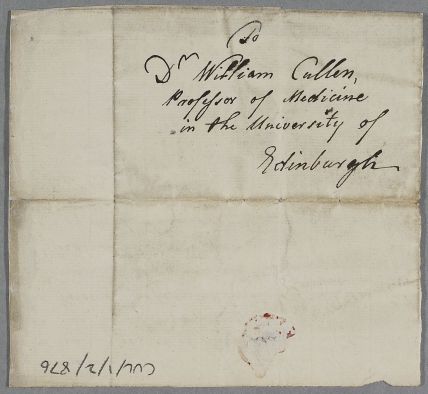 To
Dr William Cullen,
Professor of Medicine
in the University of
Edinburgh
CUL/1/2/876